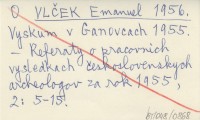 O VLČEK Emanuel 1956.
Výskum v Gánovcach 1955.
– Referáty o pracovních
výsledkách československých
archeologov za rok 1955,
2: 5-15.